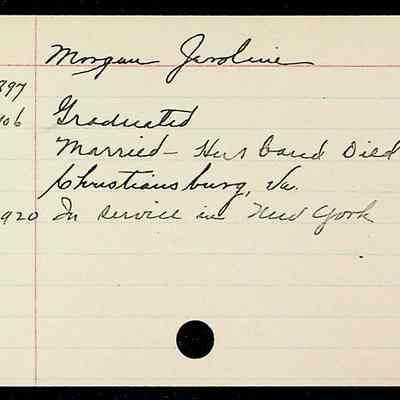 Morgan Caroline
897
906 Graduated
Married - Husband Died
Christiansburg, Va.
920 In service in New York